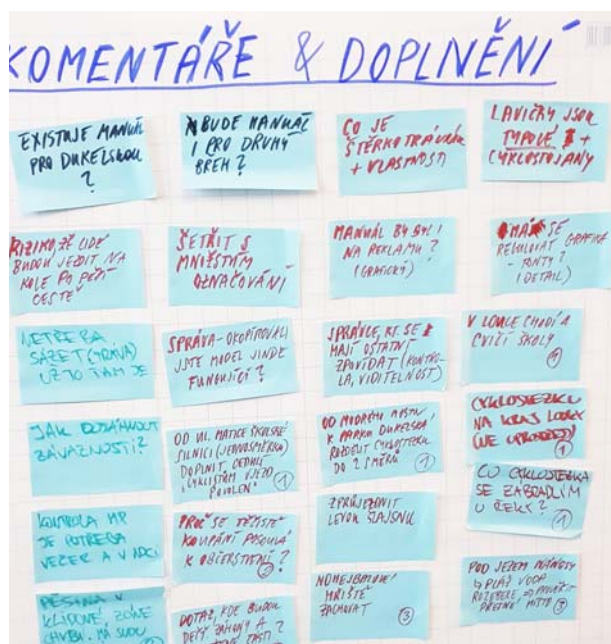 KOMENTÁŘE & DOPLNĚNÍ
EXISTUJE MANUÁL
PRO DUKELSKOU
?
BUDE MANUÁL
I PRO DRUHÝ
BŘEH?
CO JE
ŠTĚRKOTRÁVNÍK
+ VLASTNOSTI
LAVIČKY JSOU
TYPOVÉ +
CYKLOSTOJANY
RIZIKO ŽE LIDÉ
BUDOU JEZDIT NA
KOLE PO PĚŠÍ
CESTĚ
ŠETŘIT S
MNOŽSTVÍM
OZNAČOVÁNÍ
MANUÁL BY BYL I
NA REKLAMU?
(GRAFICKÝ)
MÁ SE
REGULOVAT GRAFIKA
- FONTY?
(DETAIL)
NETŘEBA
SÁZET (TRÁVA)
UŽ TO TAM JE
SPRÁVA - OKOPÍROVALI
JSTE MODEL JINDE
FUNGUJÍCÍ?
SPRÁVCE, KT. SE
MAJÍ OSTATNÍ
ZPOVÍDAT (KONTRO-
LA, VIDITELNOST)
V LOUCE CHODÍ A
CVIČÍ ŠKOLY
1
JAK DOSÁHNOUT
ZÁVAZNOSTI?
OD UL. MATICE ŠKOLSKÉ
SILNICI (JEDNOSMĚRKA)
DOPLNIT CEDULI
"CYKLISTŮM VJEZD
POVOLEN"
1
OD MODRÉHO MOSTU
K PARKU DUKELSKÁ
ROZDĚLIT CYKLOSTEZKU
DO 2 SMĚRŮ
1
CYKLOSTEZKU
NA KRAJ LOUKY
(NE UPROSTŘED)
1
KONTROLA MP
JE POTŘEBA
VEČER A V NOCI
PROČ SE TĚŽIŠTĚ
KOUPÁNÍ POSOUVÁ
K OBČERSTVENÍ?
ZPRŮJEZDNIT
LEVOU ŠLAJSNU
CO CYKLOSTEZKA
SE ZÁBRADLÍM
U ŘEKY?
1
KLIDOVÉ ZÓNĚ
DOTAZ, KDE BUDOU
NOHEJBALOVÉ
HŘIŠTĚ
ZACHOVAT
3
POD JEZEM NÁNOSY
PLÁŽ VODA